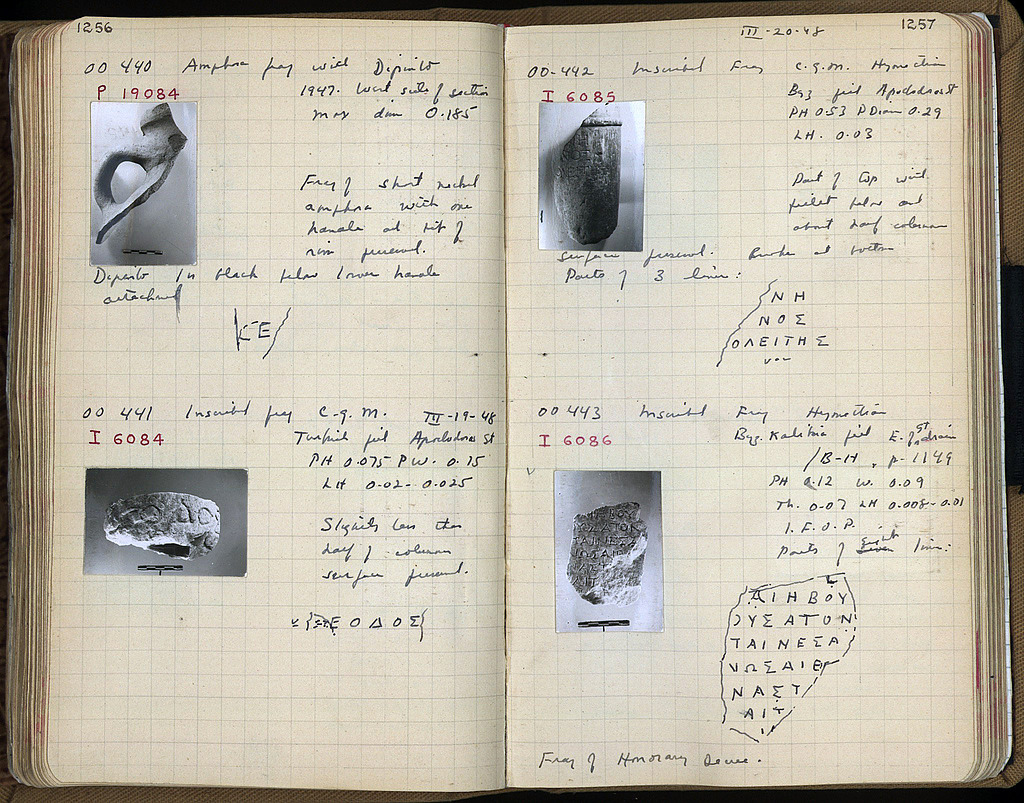 1256
OO 440 Amphora frag with Dipinto
P 19084
1947. West side of section
max dim 0.185
Frag of short necked
amphora with one
handle and bit of
rim preserved.
Dipinto in black below lower handle
attachment
ΚΕ
OO 441 Inscribed frag C.g.M. III-19-48
I 6084
Turkish fill Apollodoros St
PH 0.075 PW. 0.15
LH 0.02-0.025
Slightly less than
half of column
surface preserved.
ΕΟΔΟΣ
1257
III-20-48
OO-442 Inscribed Frag C.g.M. Hymettian
I 6085
Byz fill Apollodoros St
PH 0.53 P Diam 0.29
LH. 0.03
Part of top with
fillet below and
about half column
surface preserved. Broken at bottom
Parts of 3 lines:
ΝΗ
ΝΟΣ
ΟΛΕΙΤΗΣ
vac
OO 443 Inscribed Frag Hymettian
I 6086
Byz. fill E. of St drain
/B-H, p-1149
PH 0.12 W. 0.09
Th. 0.07 LH 0.008-0.01
I.F.O.P.
Parts of eight lines:
ΑΙΗΒΟΥ
ΟΥΣΑΤΟΝ
ΤΑΙΝΕΣΑ
ΝΩΣΑΙΕΡ
ΝΑΣΤ
ΑΙΤ
Frag of Honorary Decree.